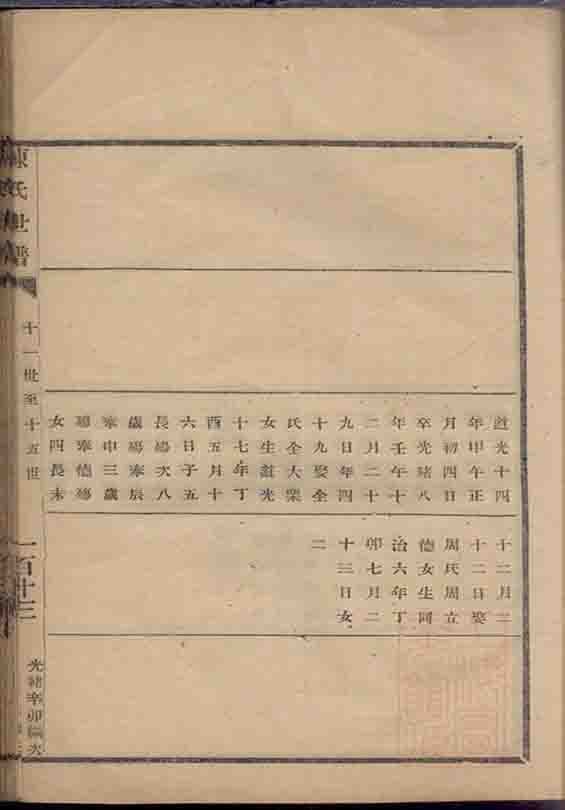 道光十四
年甲午正
月初四日
卒光緒八
年壬午十
二月二十
九日年四
十九娶全
氏全大榮
女生道光
十七年丁
酉五月十
六日子五
長殤次八
歲殤奉辰
奉申三歲
殤奉德殤
女四長未
十二月三
十二日娶
周氏周立
德女生同
治六年丁
卯七月二
十三日女
二
陳氏世譜
十一世至十五世
一百廿三
光緒辛卯編次